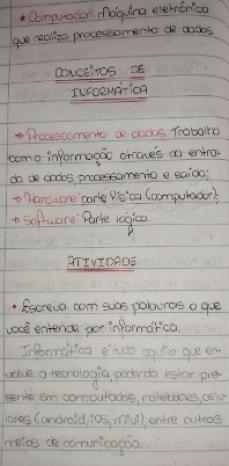 * Computador: Máquina eletrônica
que realiza processamento de dados.
CONCEITOS DE
INFORMÁTICA
→ Processamento de dados: Trabalha
com a informação através da entra-
da de dados, processamento e saída;
→ Hardware: parte física (computador);
→ Software: Parte lógica
ATIVIDADE
• Escreva com suas palavras o que
você entende por informática.
Informática é tudo aquilo que en-
volve a tecnologia, podendo estar pre-
sente em computados, notebooks, celu-
lares (android, ios, miui), entre outros
meios de comunicação.